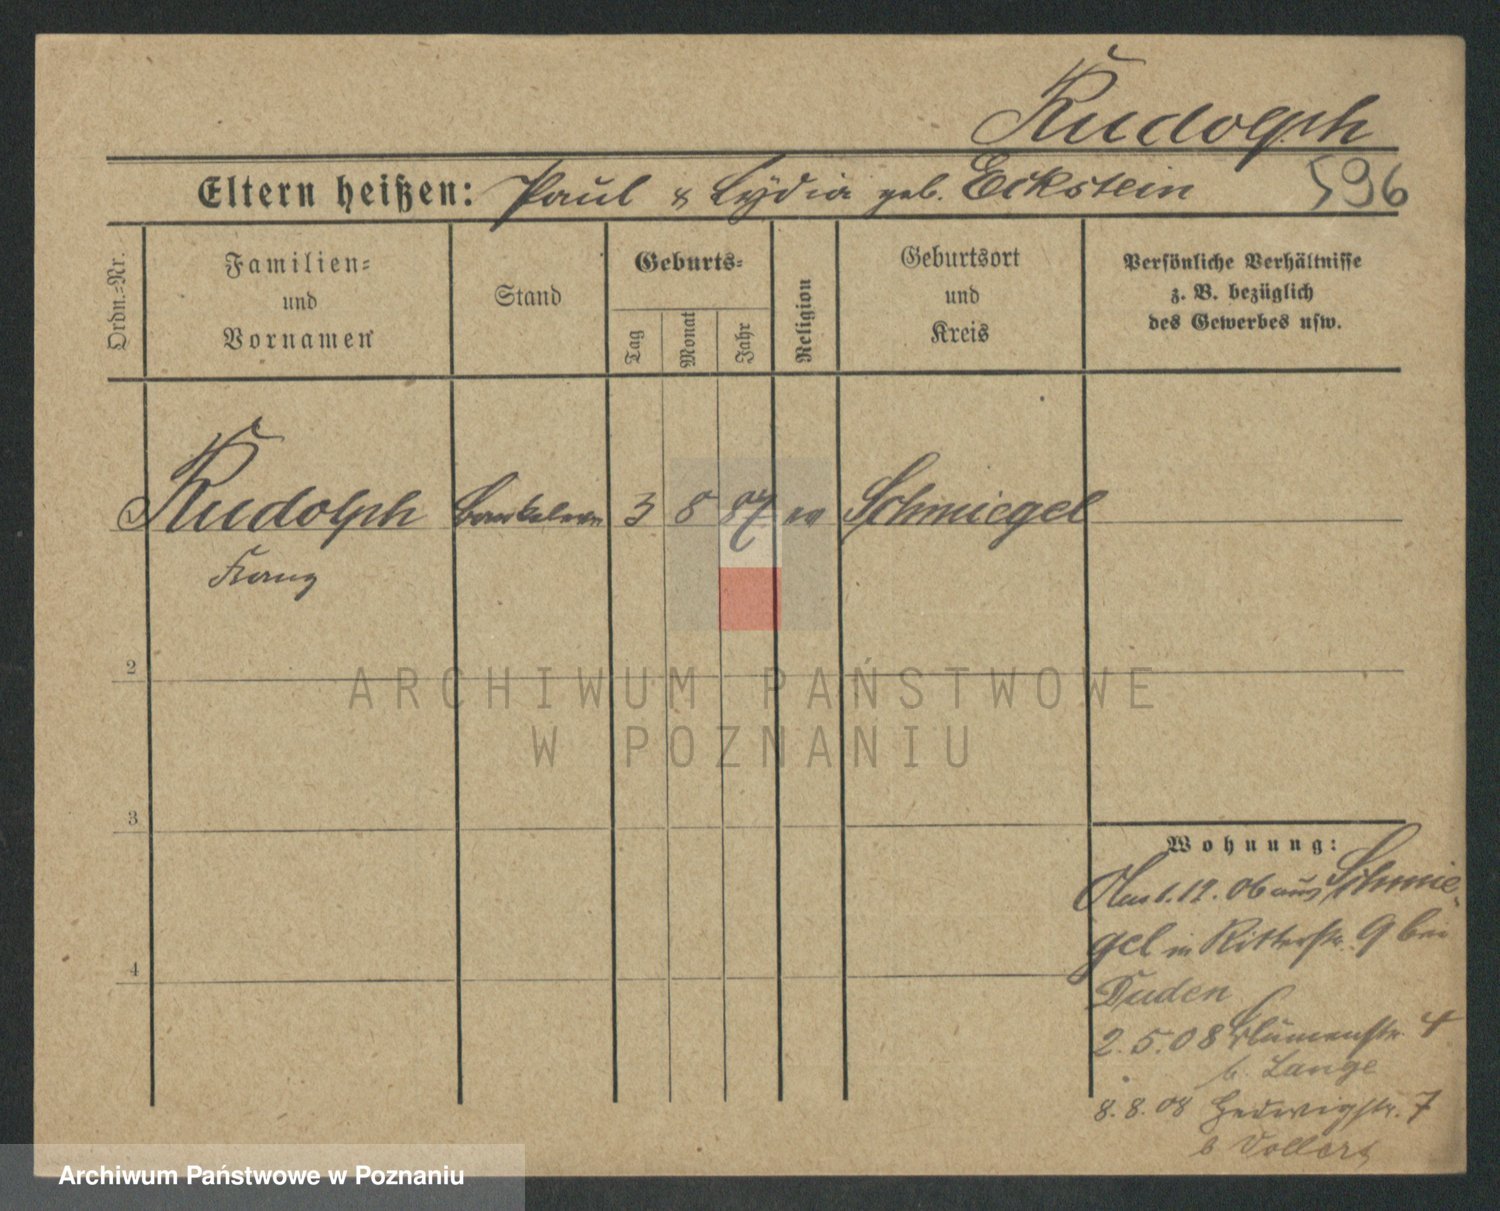 Rudolph
Eltern heißen: Paul & Lydia geb. Eckstein 596
Ordn.-Nr.
Familien- und Vornamen
Stand
Geburts-
Tag
Monat
Jahr
Religion
Geburtsort und Kreis
Persönliche Verhältnisse z. B. bezüglich des Gewerbes usw.
Rudolph 3 8 87 ev Schmiegel
Franz
2
ARCHIWUM PAŃSTWOWE
W POZNANIU
3
4
Wohnung:
1.12.06 aus Schmie-
gel in Ritterstr. 9 bei
Duden
2.5.08 Blumenstr. 4
b. Lange
8.8.08 Hedwigstr. 7
b
Archiwum Państwowe w Poznaniu